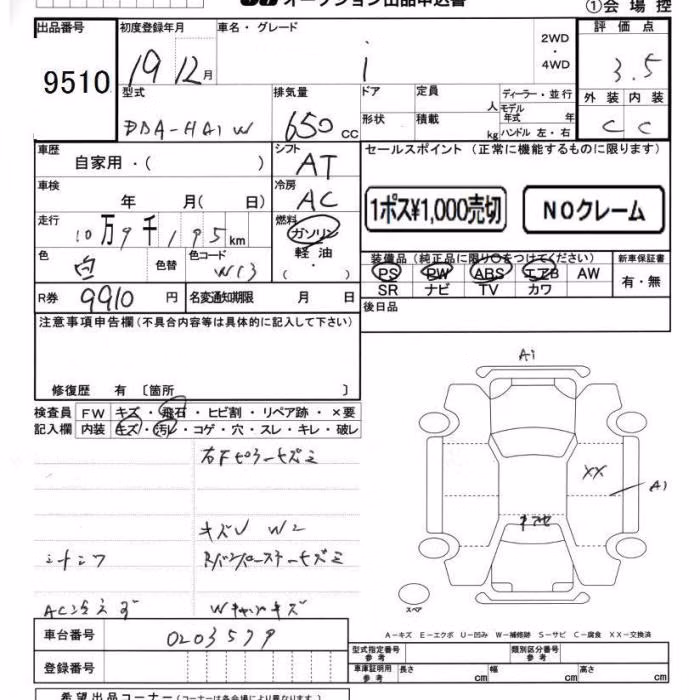 オークション出品申込書
①会場控
出品番号
9510
初度登録年月
19 12月
車名・グレード
i
2WD
・
4WD
評価点
3.5
外装 内装
C C
型式
DBA-HA1W
排気量
650cc
ドア
形状
定員 人
積載 kg
ディーラー・並行
モデル年式 年
ハンドル 左・右
車歴
自家用・( )
シフト
AT
セールスポイント (正常に機能するものに限ります)
車検
年 月( 日)
冷房
AC
1ポス¥1,000売切
NOクレーム
走行
10万9千195km
燃料
ガソリン
軽油
・( )
色
白
色替
色コード
W13
装備品(純正品に限り○をつけてください)
PS PW ABS エアB AW
SR ナビ TV カワ
新車保証書
有・無
R券
9910円
名変通知期限 月 日
後日品
注意事項申告欄(不具合内容等は具体的に記入して下さい)
修復歴 有 〔箇所 〕
検査員
記入欄
FW キズ・飛石・ヒビ割・リペア跡・×要
内装 キズ・汚レ・コゲ・穴・スレ・キレ・破レ
右Fピラーキズミ
キズU W2
AC冷えず
A1
XX
A1
スペア
A-キズ E-エクボ U-凹み W-補修跡 S-サビ C-腐食 XX-交換済
車台番号
0203579
登録番号
型式指定番号
参考
類別区分番号
参考
車庫証明用
参考
長さ cm
幅 cm
高さ cm
希望出品コーナー(コーナーは各会場により異なります。)